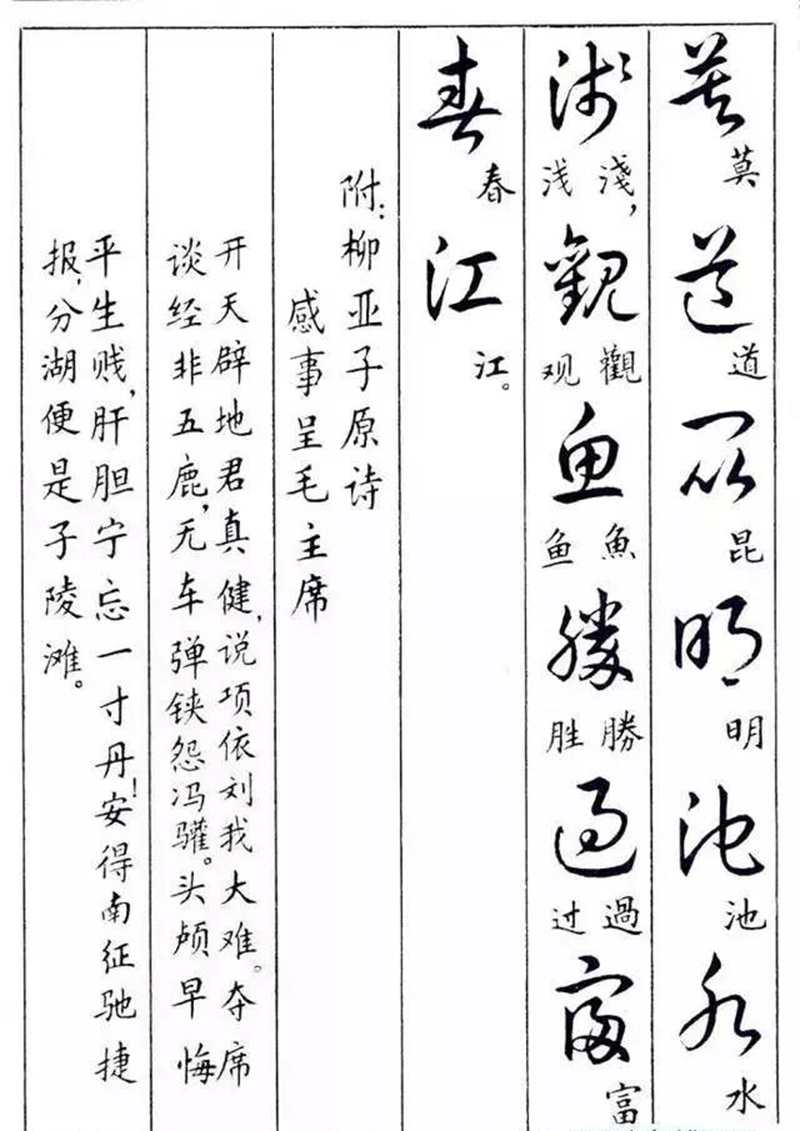 莫道昆明池水
莫道昆明池水
淺觀魚勝過富
淺，觀魚勝過富
浅观鱼胜过
春江
春江。
附：柳亚子原诗
感事呈毛主席
开天辟地君真健，说项依刘我大难。夺席
谈经非五鹿，无车弹铗怨冯驩。头颅早悔
平生贱，肝胆宁忘一寸丹！安得南征驰捷
报，分湖便是子陵滩。